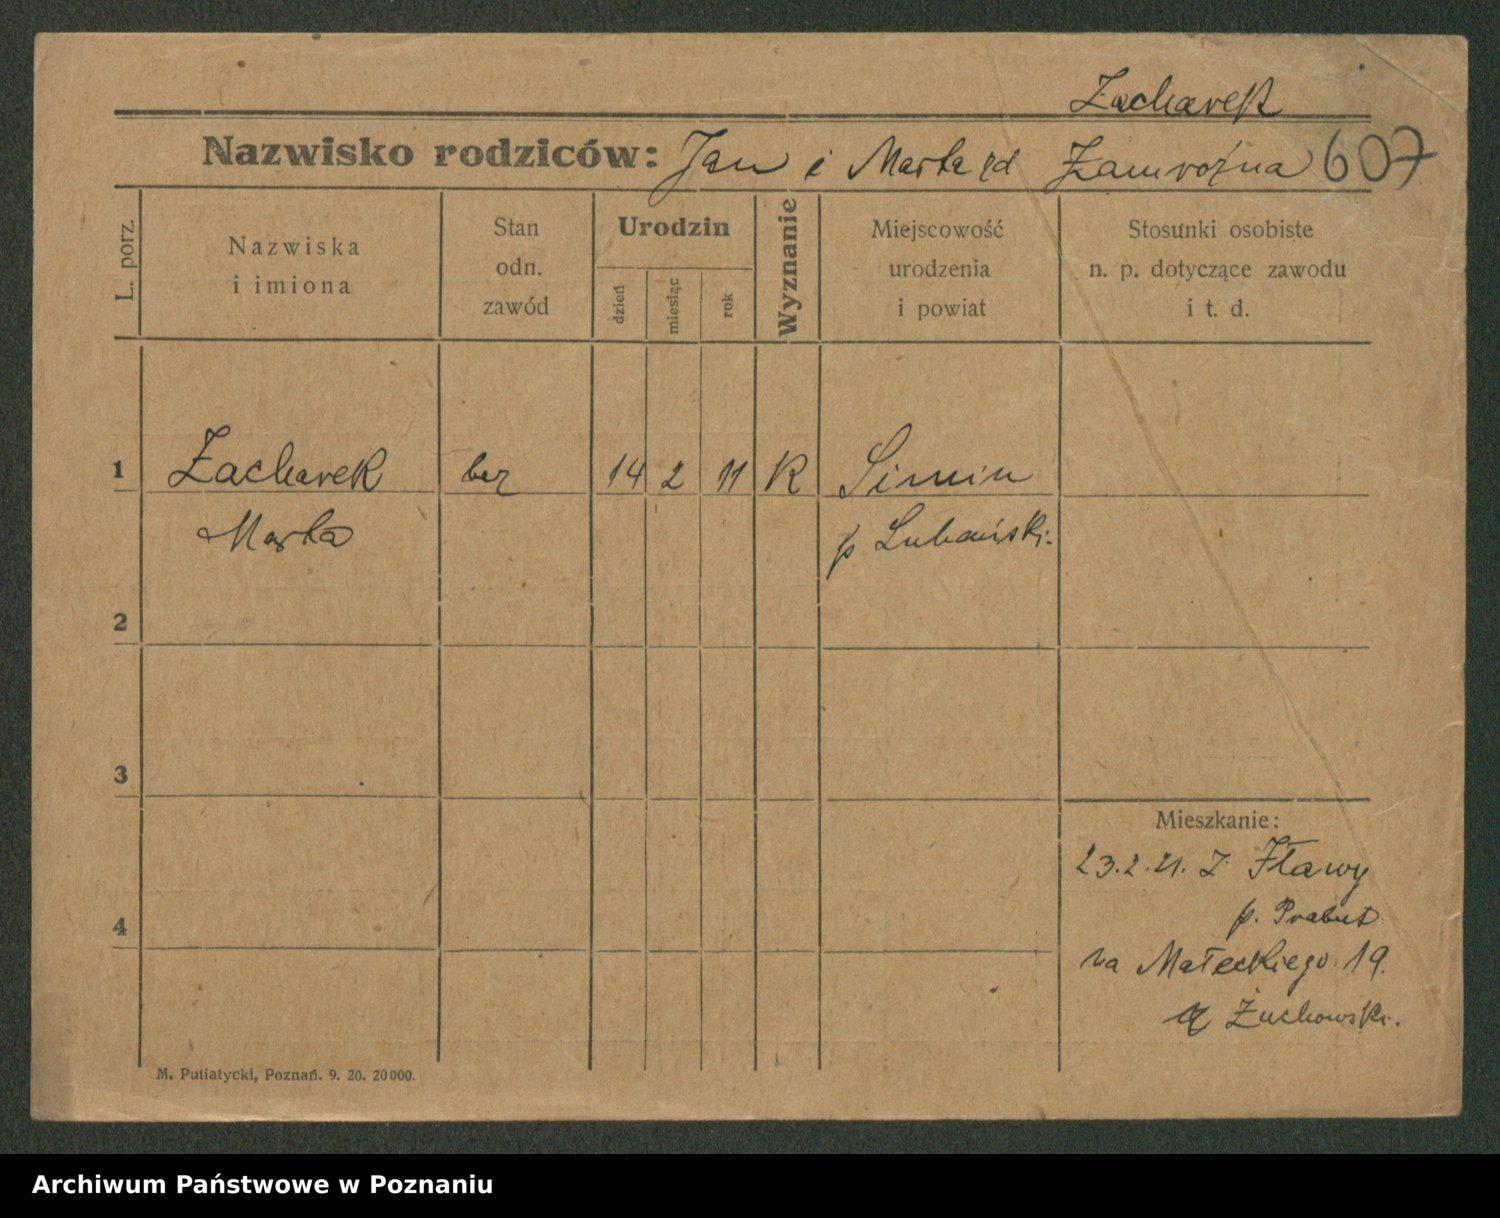 Zacharek
Nazwisko rodziców: Jan i Marta zd Zamrożna 607
L. porz.
Nazwiska
i imiona
Stan
odn.
zawód
Urodzin
dzień
miesiąc
rok
Wyznanie
Miejscowość
urodzenia
i powiat
Stosunki osobiste
n. p. dotyczące zawodu
i t. d.
1 Zacharek bez 14 2 11 K Simin
Marta p Lubański.
2
3
Mieszkanie:
23.2.21. z Iławy
p. Prabut
4
na Małeckiego 19.
Żuchowski.
M. Putiatycki, Poznań. 9. 20. 20000.
Archiwum Państwowe w Poznaniu